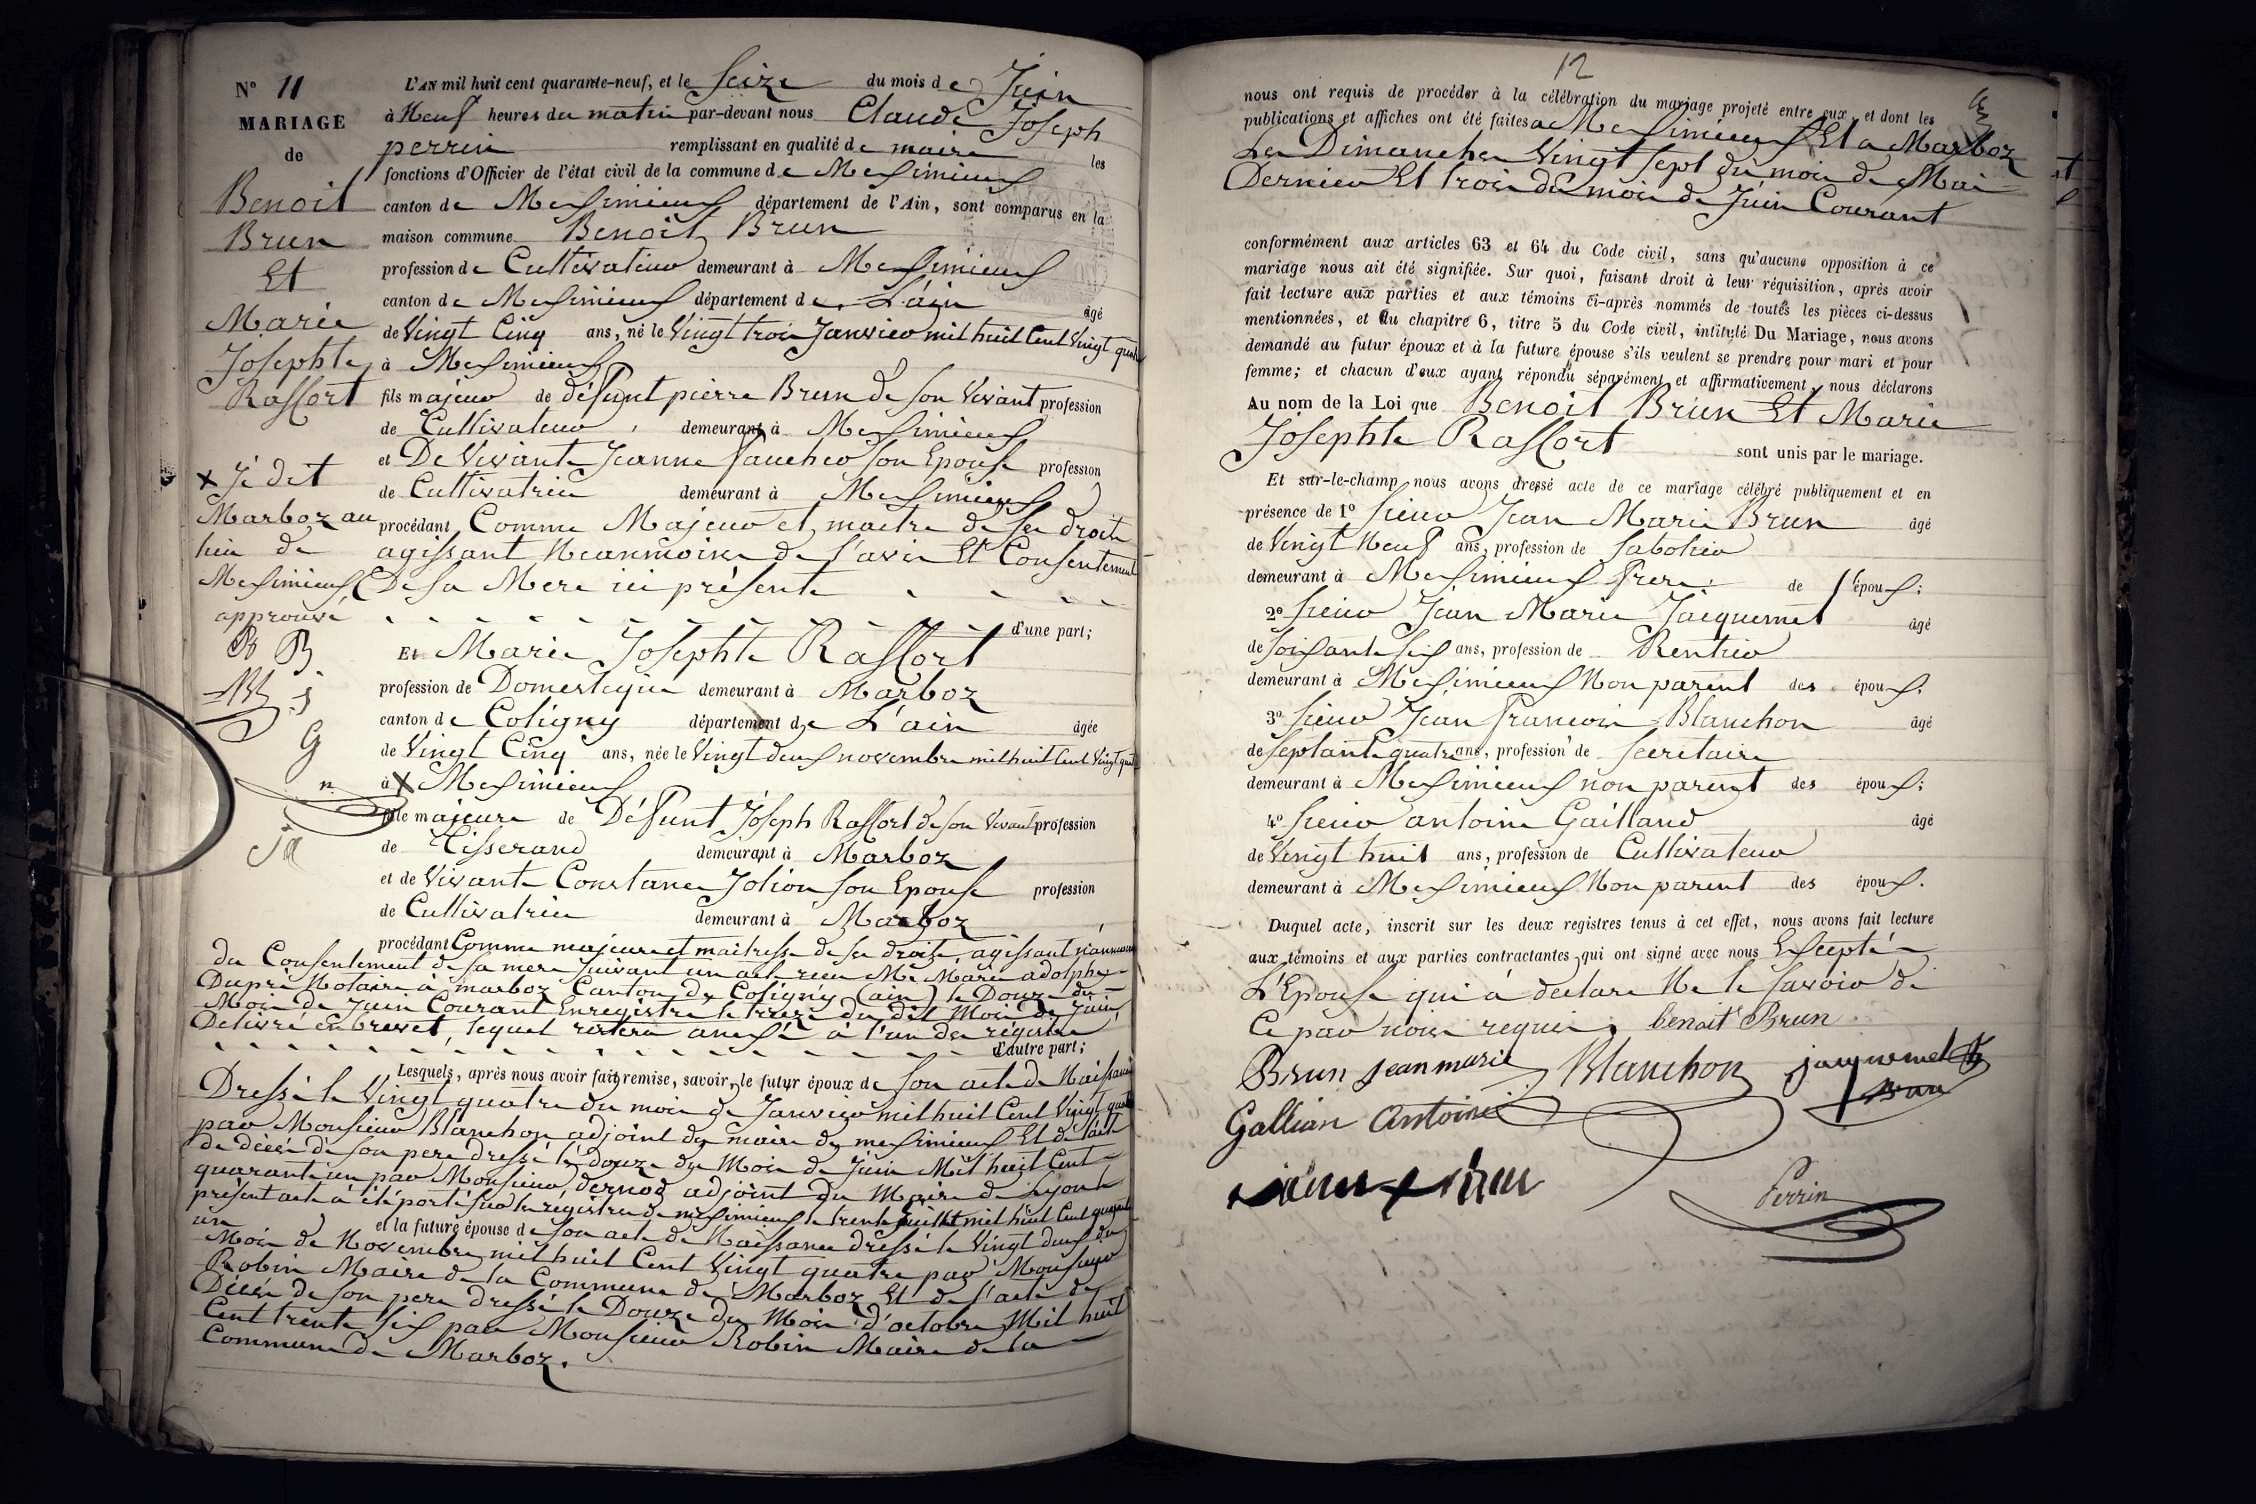 N° 11
MARIAGE
de
Benoit
Brun
Et
Marie
Josephte
Raffort
x Je dit
Marboz au
lieu de
Meximieux
approuvé
L'AN mil huit cent quarante-neuf, et le Seize du mois de Juin
à Neuf heures du matin par-devant nous Claude Joseph
perrin remplissant en qualité de maire les
fonctions d'Officier de l'état civil de la commune de Meximieux
canton de Meximieux département de l'Ain, sont comparus en la
maison commune Benoit Brun
profession de Cultivateur demeurant à Meximieux
canton de Meximieux département de L'ain âgé
de Vingt Cinq ans, né le Vingt trois Janvier mil huit Cent Vingt quatre
à Meximieux
fils majeur de défunt pierre Brun de son Vivant profession
de Cultivateur demeurant à Meximieux
et De Vivante Jeanne faucher son Epouse profession
de Cultivatrice demeurant à Meximieux
procédant Comme Majeur et maitre de ses droits
agissant Neanmoins de l'avis Et Consentement
De sa Mere ici présente
d'une part;
Et Marie Josephte Raffort
profession de Domestique demeurant à Marboz
canton de Coligny département de L'ain âgée
de Vingt Cinq ans, née le Vingt deux novembre mil huit Cent Vingt quatre
à x Meximieux
fille majeure de Défunt Joseph Raffort de son Vivant profession
de Tisserand demeurant à Marboz
et de Vivante Constance Jolion son Epouse profession
de Cultivatrice demeurant à Marboz
procédant Comme majeure et maitresse de ses droits, agissant néanmoins
du Consentement de sa mere suivant un acte recu Me Marie adolphe
Dupré Notaire à marboz Canton de Coligny (ain) le Douze du
Mois de Juin Courant Enregistré le treize du dit Mois de Juin
Delivré en brevet, lequel restera anexé à l'un des régistre
d'autre part;
Lesquels, après nous avoir fait remise, savoir, le futur époux de son acte de Naissance
Dressé le Vingt quatre du mois de Janvier mil huit Cent Vingt quatre
par Monsieur Blanchon adjoint du maire de meximieux Et de l'acte
de décès de son pere dressé le douze du Mois de Juin Mil huit Cent
quarante un par Monsieur dernod adjoint du Maire de Lyon le
présent acte à été porté sur les régistres de meximieux le trente juillet mil huit Cent quarante
un et la future épouse de son acte de Naissance dressé le Vingt deux du
Mois de Novembre mil huit Cent Vingt quatre par Monsieur
Robin Maire de la Commune de Marboz Et de l'acte de
Décès de son pere dressé le Douze du Mois d'octobre Mil huit
Cent trente six par Monsieur Robin Maire de la
Commune de Marboz.
12
nous ont requis de procéder à la célébration du mariage projeté entre eux, et dont les
publications et affiches ont été faites a Meximieux Et a Marboz
Les Dimanches Vingt sept du mois de Mai
Dernier Et trois du mois de Juin Courant
conformément aux articles 63 et 64 du Code civil, sans qu'aucune opposition à ce
mariage nous ait été signifiée. Sur quoi, faisant droit à leur réquisition, après avoir
fait lecture aux parties et aux témoins ci-après nommés de toutes les pièces ci-dessus
mentionnées, et du chapitre 6, titre 5 du Code civil, intitulé Du Mariage, nous avons
demandé au futur époux et à la future épouse s'ils veulent se prendre pour mari et pour
femme; et chacun d'eux ayant répondu séparément et affirmativement, nous déclarons
Au nom de la Loi que Benoit Brun Et Marie
Josephte Raffort sont unis par le mariage.
Et sur-le-champ nous avons dressé acte de ce mariage célébré publiquement et en
présence de 1° sieur Jean Marie Brun âgé
de Vingt Neuf ans, profession de sabotier
demeurant à Meximieux frere de l'époux;
2° sieur Jean Marie Jacquemet âgé
de soixante six ans, profession de Rentier
demeurant à Meximieux Non parent des époux;
3° sieur Jean francois Blanchon âgé
de septante quatre ans, profession de secretaire
demeurant à Meximieux non parent des époux;
4° sieur antoine Gailland âgé
de Vingt huit ans, profession de Cultivateur
demeurant à Meximieux Non parent des époux.
Duquel acte, inscrit sur les deux registres tenus à cet effet, nous avons fait lecture
aux témoins et aux parties contractantes qui ont signé avec nous Excepté
L'Epouse qui a declaré Ne le savoir de
Ce par nous requis. benoit Brun
Brun jean marie Blanchon jacquemet
Gallian Antoine
Perrin